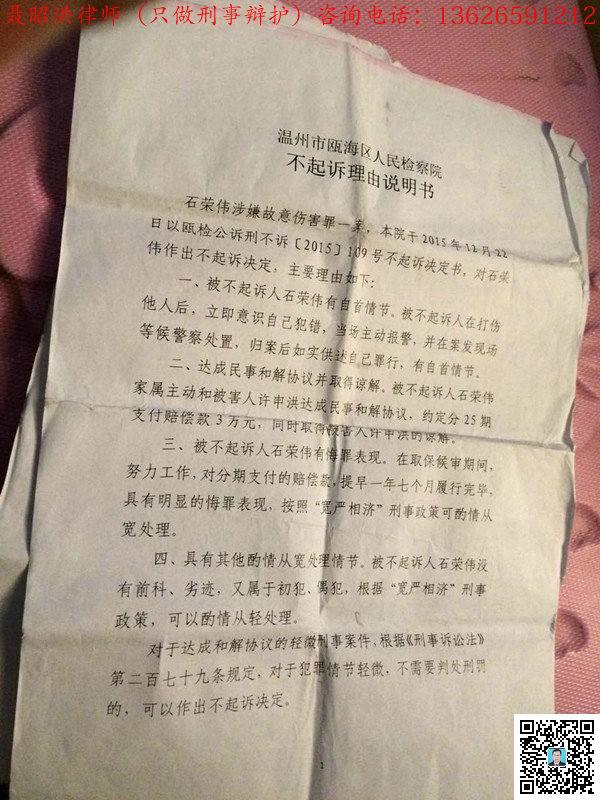 聂昭洪律师（只做刑事辩护）咨询电话：13626591212
温州市瓯海区人民检察院
不起诉理由说明书
石荣伟涉嫌故意伤害罪一案，本院于2015年12月22
日以瓯检公诉刑不诉〔2015〕109号不起诉决定书，对石荣
伟作出不起诉决定，主要理由如下：
一、被不起诉人石荣伟有自首情节。被不起诉人在打伤
他人后，立即意识自己犯错，当场主动报警，并在案发现场
等候警察处置，归案后如实供述自己罪行，有自首情节。
二、达成民事和解协议并取得谅解。被不起诉人石荣伟
家属主动和被害人许申洪达成民事和解协议，约定分25期
支付赔偿款3万元，同时取得被害人许申洪的谅解。
三、被不起诉人石荣伟有悔罪表现。在取保候审期间，
努力工作，对分期支付的赔偿款，提早一年七个月履行完毕，
具有明显的悔罪表现，按照“宽严相济”刑事政策可酌情从
宽处理。
四、具有其他酌情从宽处理情节。被不起诉人石荣伟没
有前科、劣迹，又属于初犯、偶犯，根据“宽严相济”刑事
政策，可以酌情从轻处理。
对于达成和解协议的轻微刑事案件，根据《刑事诉讼法》
第二百七十九条规定，对于犯罪情节轻微，不需要判处刑罚
的，可以作出不起诉决定。
1